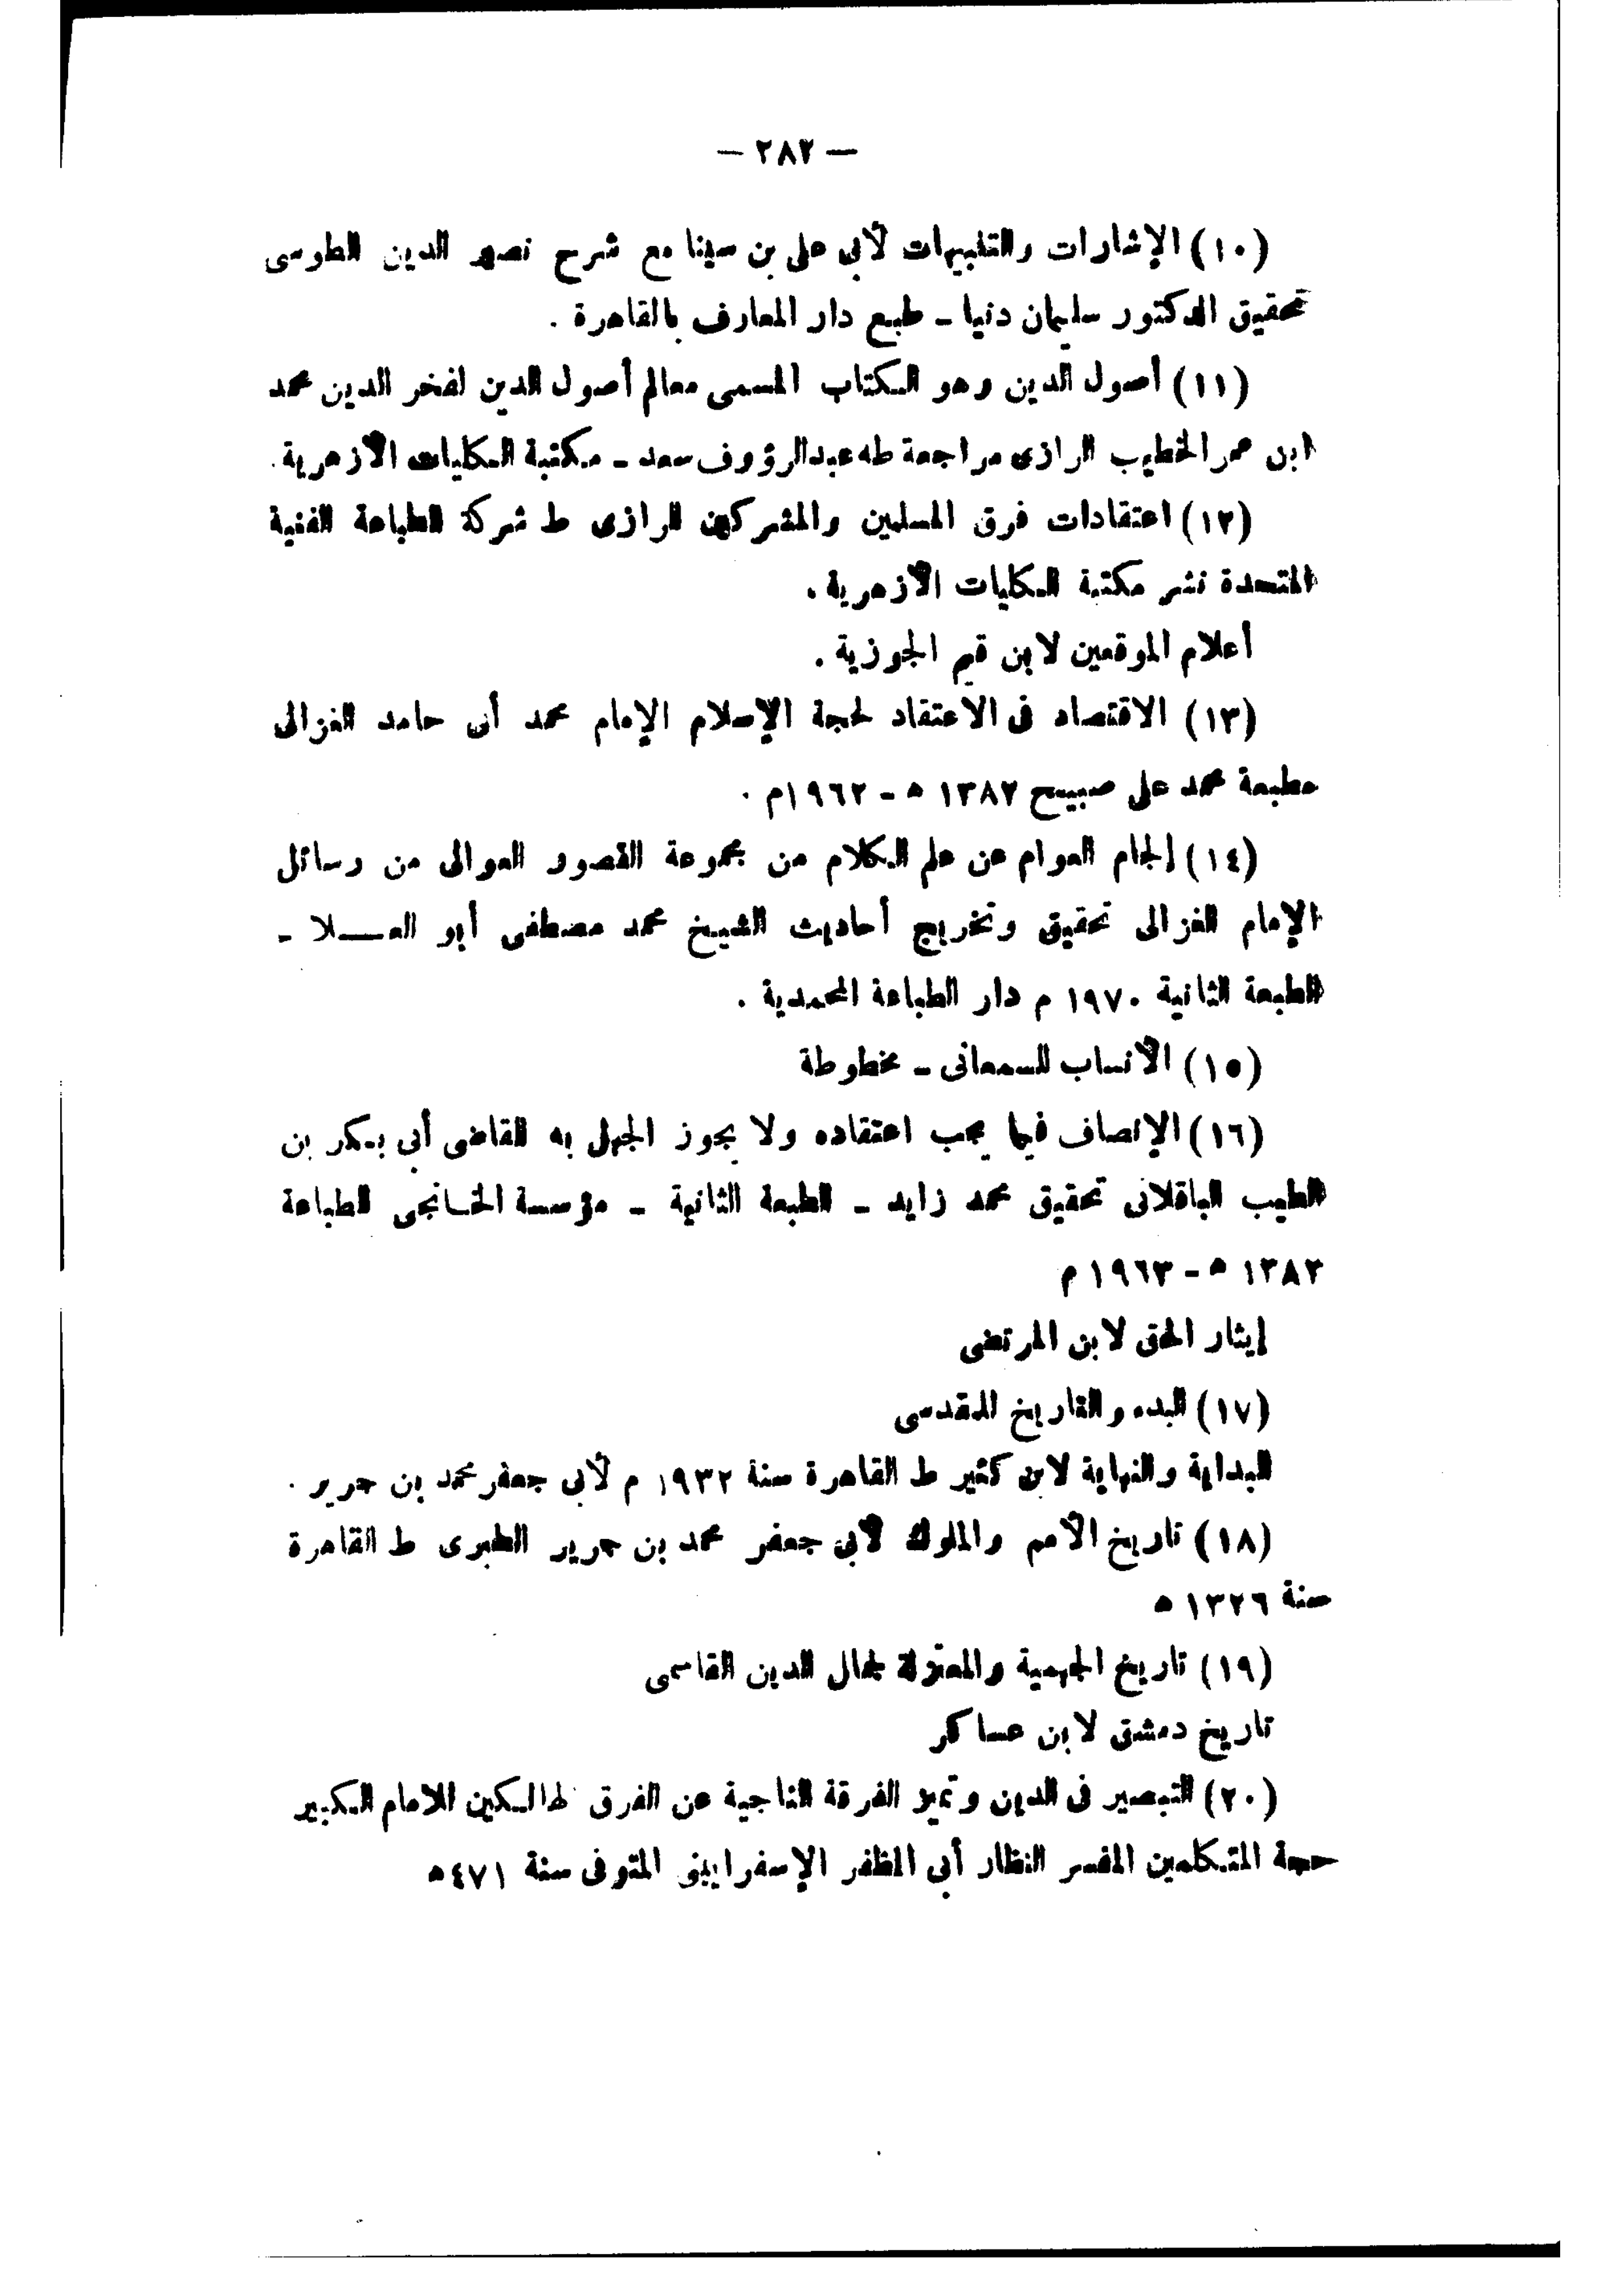 — ٢٨٢ —
(١٠) الإشارات والتنبيهات لأبى على بن سينا مع شرح نصير الدين الطوسى
تحقيق الدكتور سليمان دنيا - طبع دار المعارف بالقاهرة .
(١١) أصول الدين وهو الكتاب المسمى معالم أصول الدين لفخر الدين محمد
ابن عمر الخطيب الرازى مراجعة طه عبد الرؤوف سعد - مكتبة الكليات الأزهرية.
(١٢) اعتقادات فرق المسلمين والمشركين للرازى ط شركة الطباعة الفنية
المتحدة نشر مكتبة الكليات الأزهرية .
أعلام الموقعين لابن قيم الجوزية .
(١٣) الاقتصاد فى الاعتقاد لحجة الإسلام الإمام محمد أبى حامد الغزالى
مطبعة محمد على صبيح ١٣٨٢ ه - ١٩٦٢م .
(١٤) إلجام العوام عن علم الكلام من مجموعة القصور العوالى من رسائل
الإمام الغزالى تحقيق وتخريج أحاديث الشيخ محمد مصطفى أبو العــلا -
الطبعة الثانية ١٩٧٠ م دار الطباعة المحمدية .
(١٥) الأنساب للسمعانى - مخطوطة
(١٦) الإنصاف فيما يجب اعتقاده ولا يجوز الجهل به للقاضى أبى بكر بن
الطيب الباقلانى تحقيق محمد زايد - الطبعة الثانية - مؤسسة الخانجى للطباعة
١٣٨٢ ه - ١٩٦٣ م
إيثار الحق لابن المرتضى
(١٧) البدء والتاريخ للمقدسى
البداية والنهاية لابن كثير ط القاهرة سنة ١٩٣٢ م لأبى جعفر محمد بن جرير .
(١٨) تاريخ الأمم والملوك لأبى جعفر محمد بن جرير الطبرى ط القاهرة
سنة ١٣٢٦ ه
(١٩) تاريخ الجهمية والمعتزلة لجمال الدين القاسمى
تاريخ دمشق لابن عساكر
(٢٠) التبصير فى الدين وتميز الفرقة الناجية عن الفرق الهالكين للامام الكبير
حجة المتكلمين المفسر النظار أبى المظفر الإسفرايينى المتوفى سنة ٤٧١ه